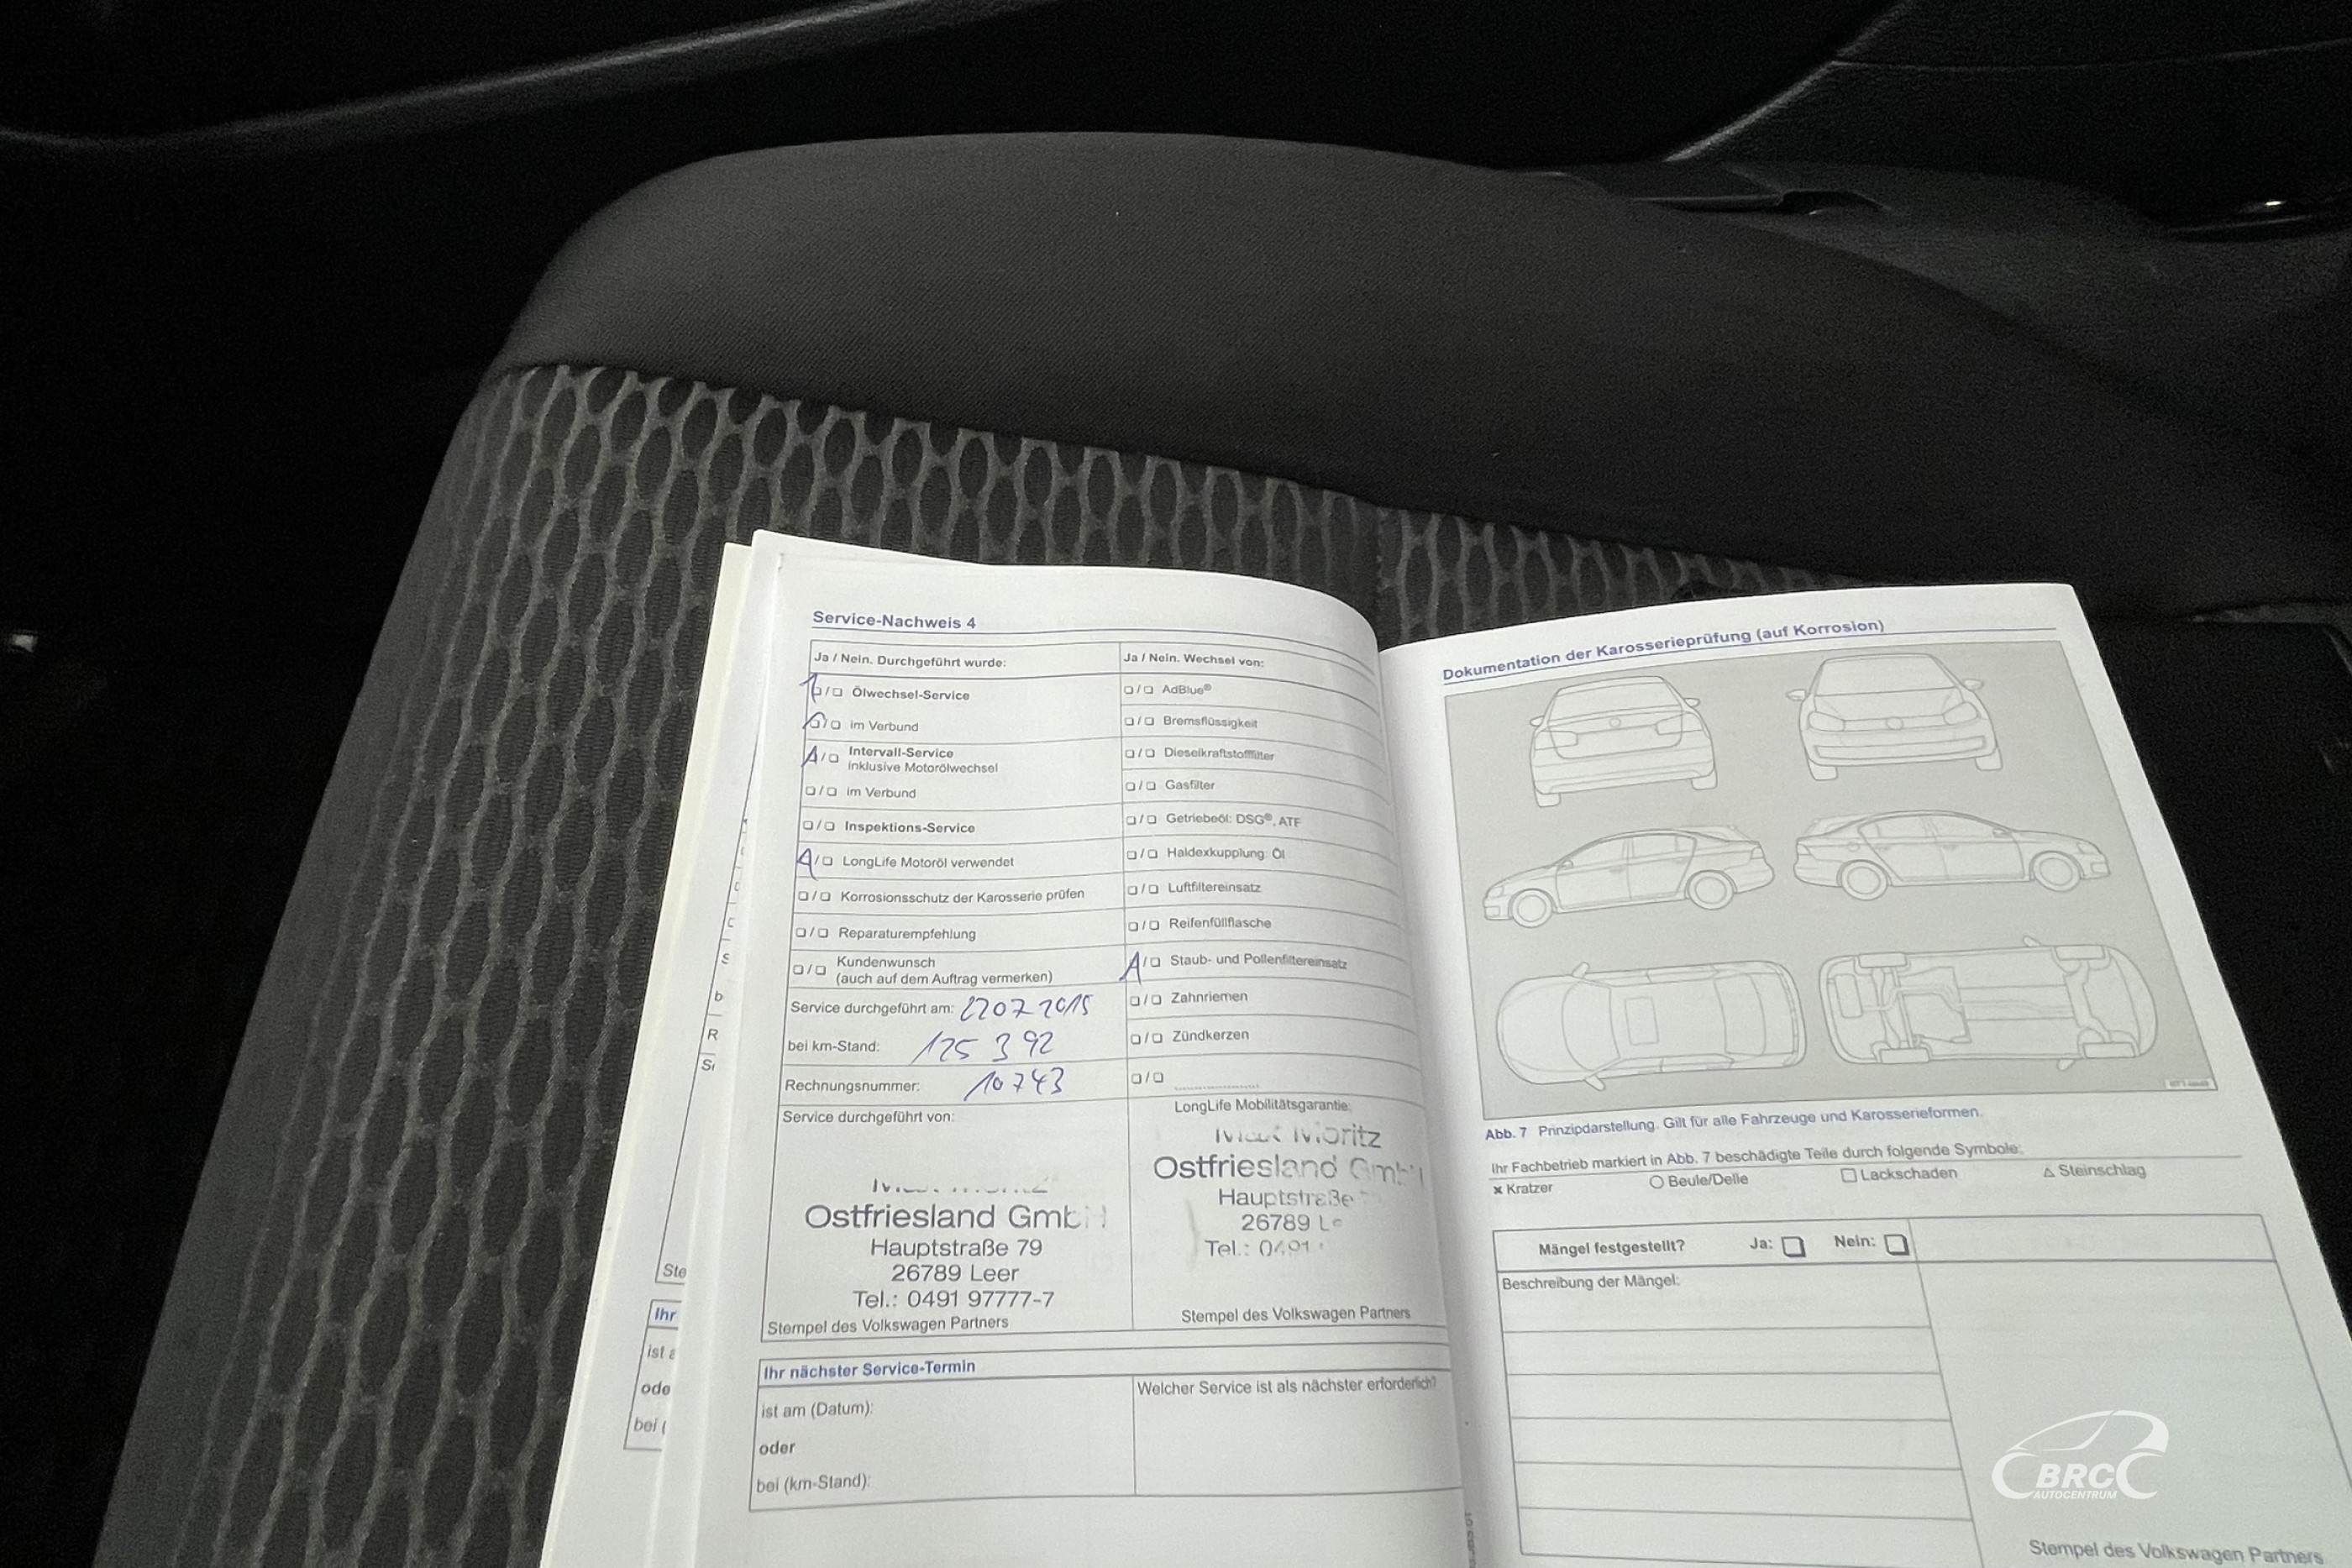 Service-Nachweis 4
Ja / Nein. Durchgeführt wurde:
Ölwechsel-Service
im Verbund
Intervall-Service
inklusive Motorölwechsel
im Verbund
Inspektions-Service
LongLife Motoröl verwendet
Korrosionsschutz der Karosserie prüfen
Reparaturempfehlung
Kundenwunsch
(auch auf dem Auftrag vermerken)
Service durchgeführt am: 2207 2015
bei km-Stand: 125 392
Rechnungsnummer: 10743
Service durchgeführt von:
Ostfriesland GmbH
Hauptstraße 79
26789 Leer
Tel.: 0491 97777-7
Stempel des Volkswagen Partners
Ja / Nein. Wechsel von:
AdBlue®
Bremsflüssigkeit
Dieselkraftstofffilter
Gasfilter
Getriebeöl: DSG®, ATF
Haldexkupplung: Öl
Luftfiltereinsatz
Reifenfüllflasche
Staub- und Pollenfiltereinsatz
Zahnriemen
Zündkerzen
LongLife Mobilitätsgarantie:
Moritz
Ostfriesland GmbH
Hauptstraße
26789
Tel.: 0491
Stempel des Volkswagen Partners
Ihr nächster Service-Termin
ist am (Datum):
oder
bei (km-Stand):
Welcher Service ist als nächster erforderlich?
Dokumentation der Karosserieprüfung (auf Korrosion)
Abb. 7 Prinzipdarstellung. Gilt für alle Fahrzeuge und Karosserieformen.
Ihr Fachbetrieb markiert in Abb. 7 beschädigte Teile durch folgende Symbole:
× Kratzer ○ Beule/Delle □ Lackschaden △ Steinschlag
Mängel festgestellt? Ja: Nein:
Beschreibung der Mängel:
Stempel des Volkswagen Partners
Ste
Ihr
ode
bei (
BRC
AUTOCENTRUM